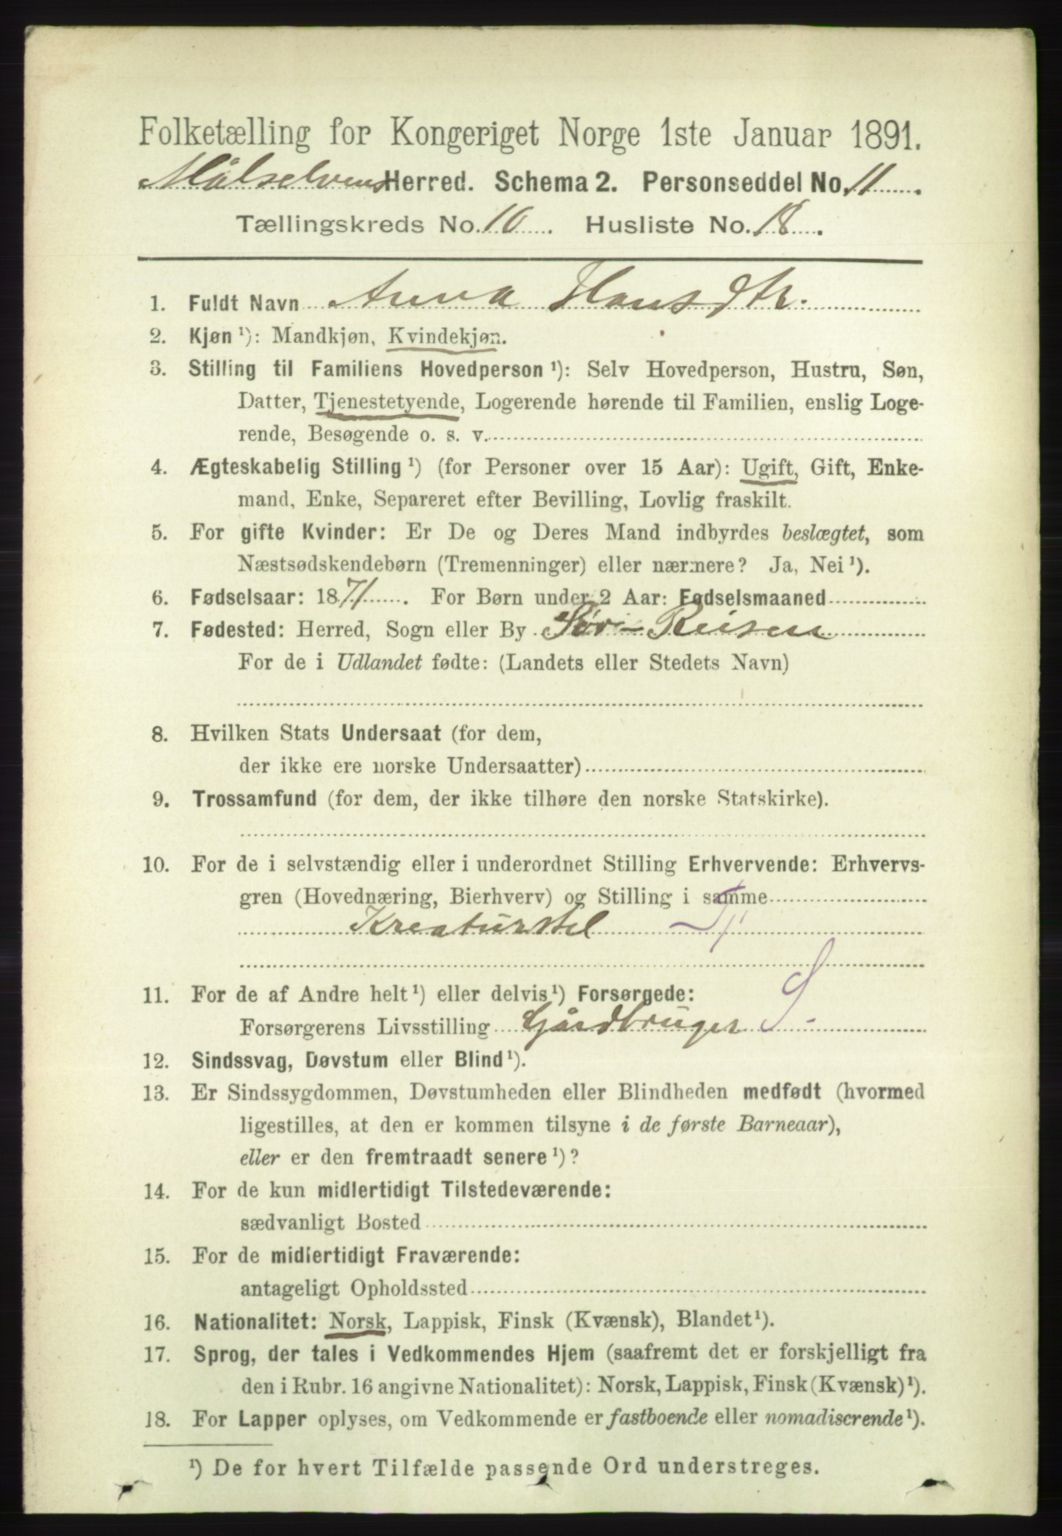 Folketælling for Kongeriget Norge 1ste Januar 1891.
Målselvens Herred. Schema 2. Personseddel No. 11
Tællingskreds No. 10. Husliste No. 18.
1. Fuldt Navn Anna Hansdtr.
2. Kjøn ¹): Mandkjøn, Kvindekjøn.
3. Stilling til Familiens Hovedperson ¹): Selv Hovedperson, Hustru, Søn,
Datter, Tjenestetyende, Logerende hørende til Familien, enslig Loge-
rende, Besøgende o. s. v.
4. Ægteskabelig Stilling ¹) (for Personer over 15 Aar): Ugift, Gift, Enke-
mand, Enke, Separeret efter Bevilling, Lovlig fraskilt.
5. For gifte Kvinder: Er De og Deres Mand indbyrdes beslægtet, som
Næstsødskendebørn (Tremenninger) eller nærmere? Ja, Nei ¹).
6. Fødselsaar: 1871. For Børn under 2 Aar: Fødselsmaaned
7. Fødested: Herred, Sogn eller By Sør-Reisen
For de i Udlandet fødte: (Landets eller Stedets Navn)
8. Hvilken Stats Undersaat (for dem,
der ikke ere norske Undersaatter)
9. Trossamfund (for dem, der ikke tilhøre den norske Statskirke).
10. For de i selvstændig eller i underordnet Stilling Erhvervende: Erhvervs-
gren (Hovednæring, Bierhverv) og Stilling i samme
Kreaturstel Tj
11. For de af Andre helt ¹) eller delvis ¹) Forsørgede:
Forsørgerens Livsstilling Gårdbruger S.
12. Sindssvag, Døvstum eller Blind ¹).
13. Er Sindssygdommen, Døvstumheden eller Blindheden medfødt (hvormed
ligestilles, at den er kommen tilsyne i de første Barneaar),
eller er den fremtraadt senere ¹)?
14. For de kun midlertidigt Tilstedeværende:
sædvanligt Bosted
15. For de midlertidigt Fraværende:
antageligt Opholdssted
16. Nationalitet: Norsk, Lappisk, Finsk (Kvænsk), Blandet ¹).
17. Sprog, der tales i Vedkommendes Hjem (saafremt det er forskjelligt fra
den i Rubr. 16 angivne Nationalitet): Norsk, Lappisk, Finsk (Kvænsk) ¹).
18. For Lapper oplyses, om Vedkommende er fastboende eller nomadiserende ¹).
¹) De for hvert Tilfælde passende Ord understreges.